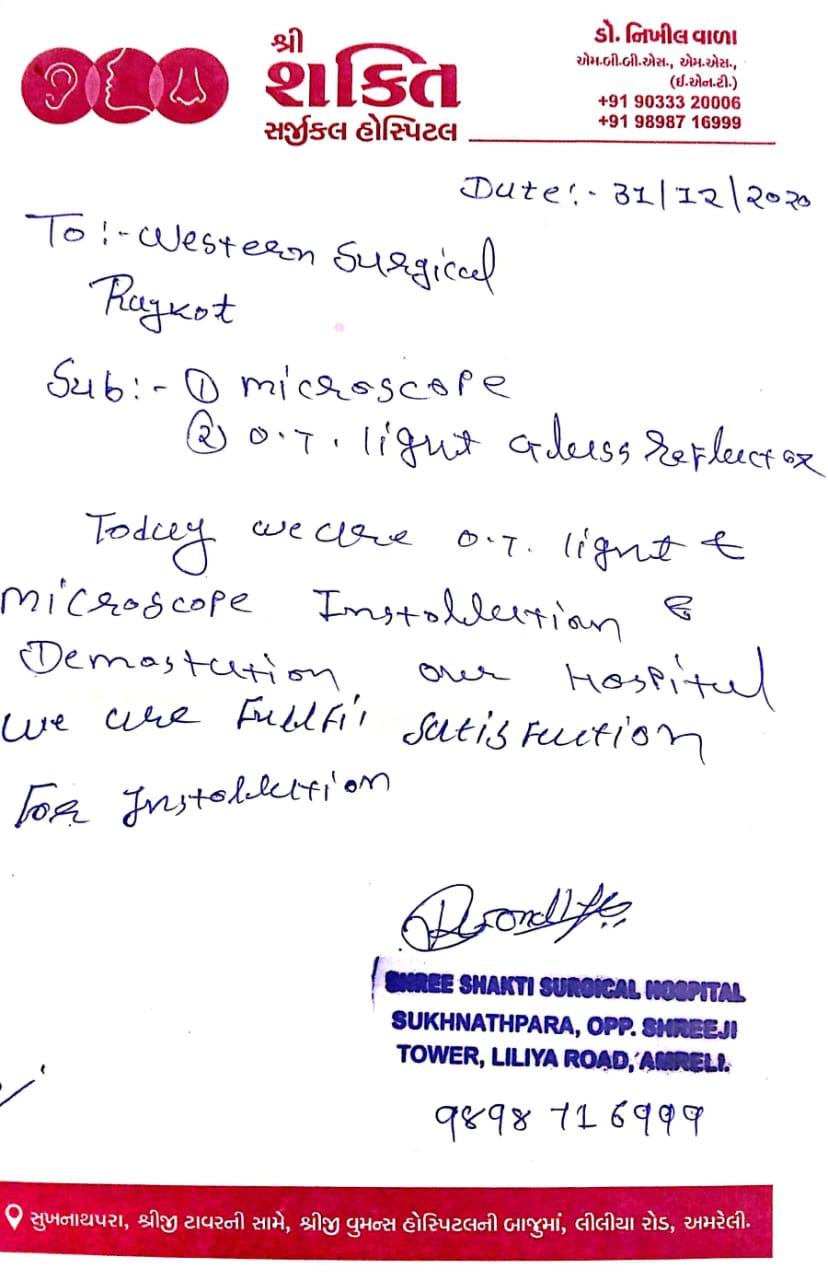 શ્રી
શક્તિ
સર્જીકલ હોસ્પિટલ
ડો. નિખીલ વાળા
એમ.બી.બી.એસ., એમ.એસ.,
(ઈ.એન.ટી.)
+91 90333 20006
+91 98987 16999
Date:- 31/12/2020
To:- Western Surgical
Rajkot
Sub:- ① microscope
② O.T. light Glass Reflector
Today we are O.T. light &
microscope Installation &
Demostation our Hospital
we are Fullfil satisfaction
For Installation
SHREE SHAKTI SURGICAL HOSPITAL
SUKHNATHPARA, OPP. SHREEJI
TOWER, LILIYA ROAD, AMRELI.
9898 71 6999
સુખનાથપરા, શ્રીજી ટાવરની સામે, શ્રીજી વુમન્સ હોસ્પિટલની બાજુમાં, લીલીયા રોડ, અમરેલી.